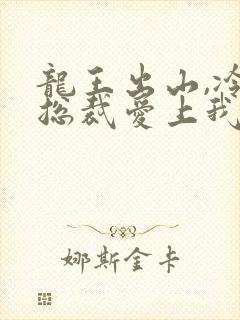 龍王出山,冷
總裁愛上我
娜斯金卡